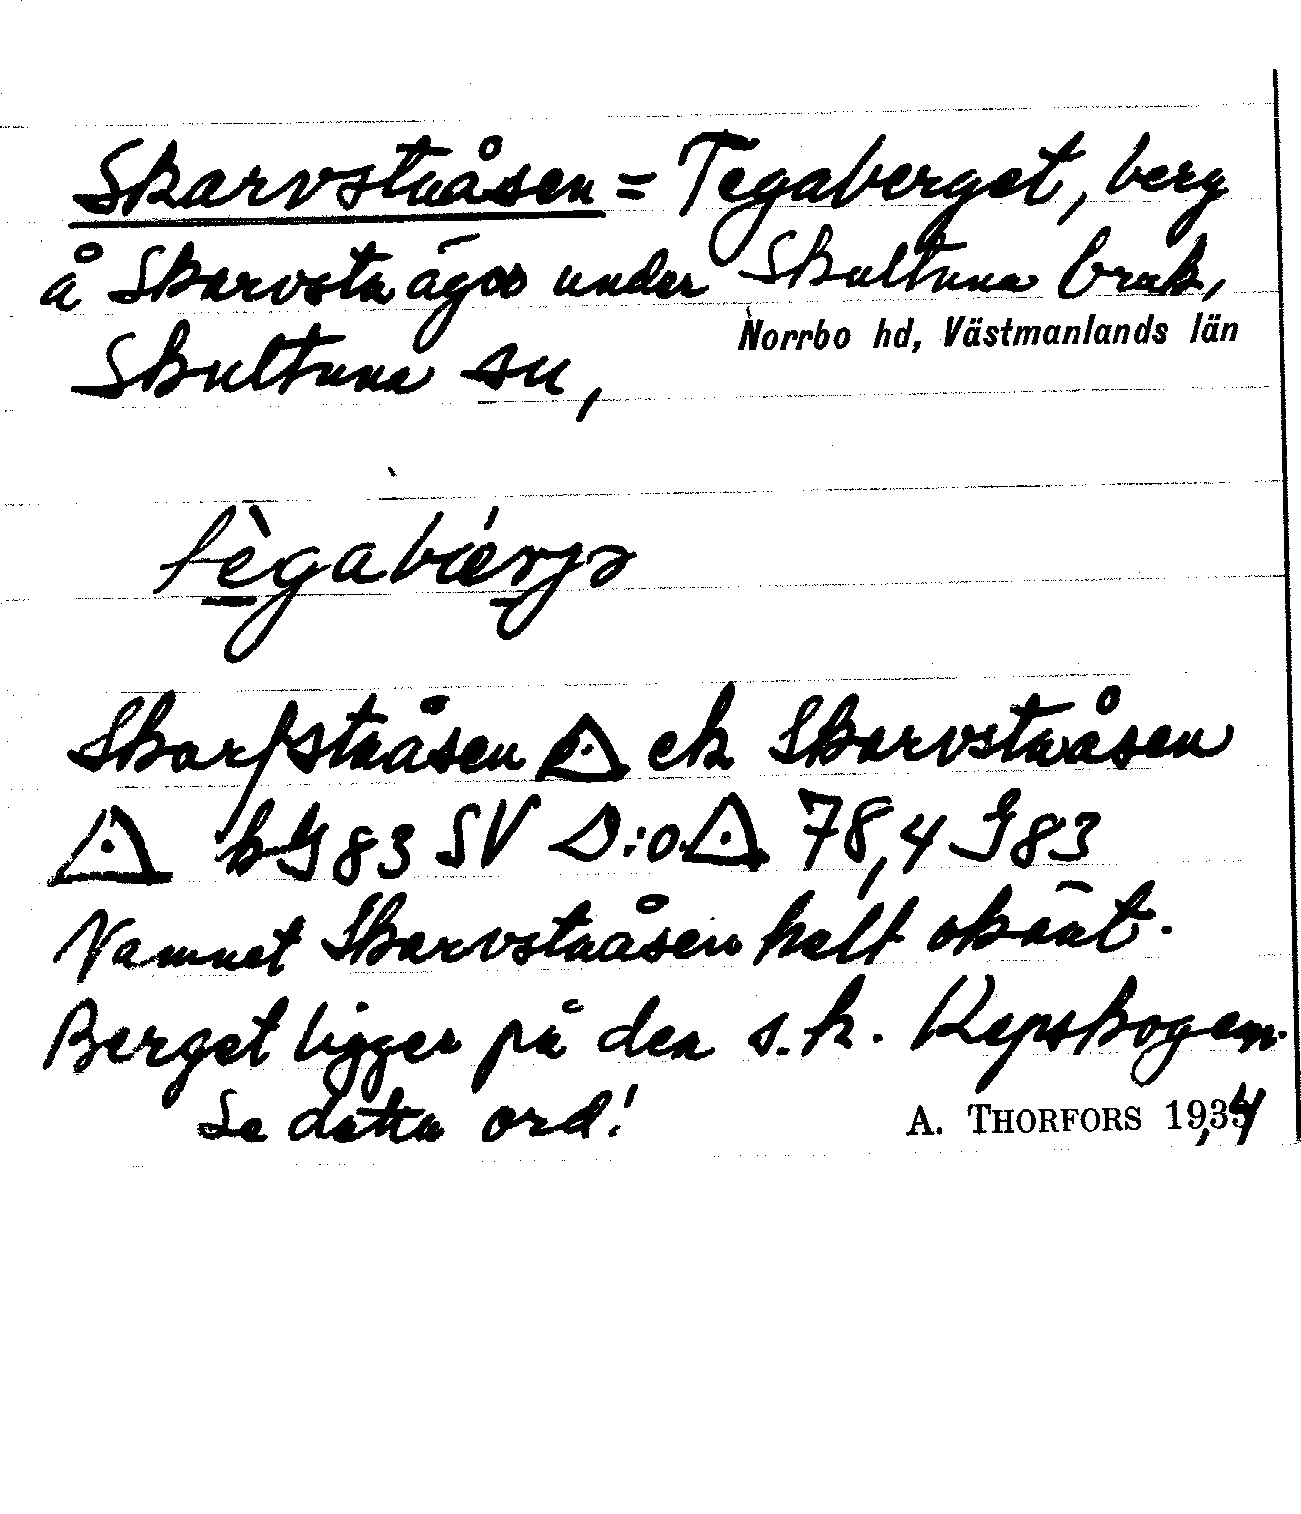 Skarvstaåsen = Tegaberget, berg
å Skarvsta ägor under Skultuna bruk,
Norrbo hd, Västmanlands län
Skultuna sn,
tègabǽrjə
Skarfstaåsen ◬ ek Skarvstaåsen
◬ bG 83 SV D:o ◬ 78,4 G 83
Namnet Skarvstaåsen helt okänt.
Berget ligger på den s.k. Kepskogen.
Se detta ord!
A. THORFORS 1934